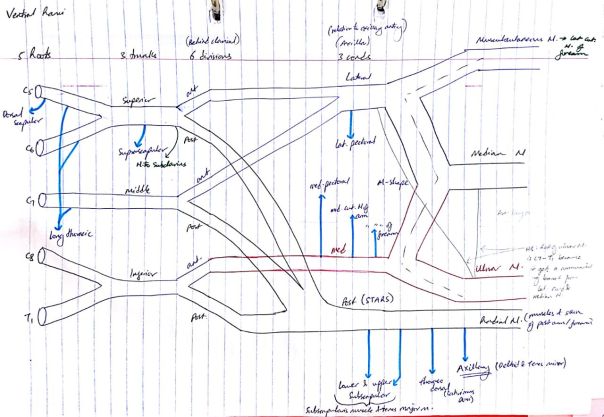 Ventral Rami
5 Roots
3 trunks
(Behind clavicle)
6 divisions
(relation to axillary artery)
(Axilla)
3 cords
Musculocutaneous N. → Lat cut.
N. of
forearm
C5
Dorsal
scapular
C6
C7
C8
T1
Long thoracic
Superior
Suprascapular
N. to Subclavius
middle
Inferior
ant.
Post
ant.
Post
ant.
Post.
Lateral
Lat. pectoral
M-shape
med-pectoral
med cut. N of
arm
" " of
forearm
med
Median N
Ulnar N.
Post (STARS)
Radial N.
(muscles & skin
of post arm/forearm)
Lower & upper
Subscapular
Subscapularis muscle & teres major m.
thoraco
dorsal
(Latissimus
dorsi)
Axillary (Deltoid & teres minor)